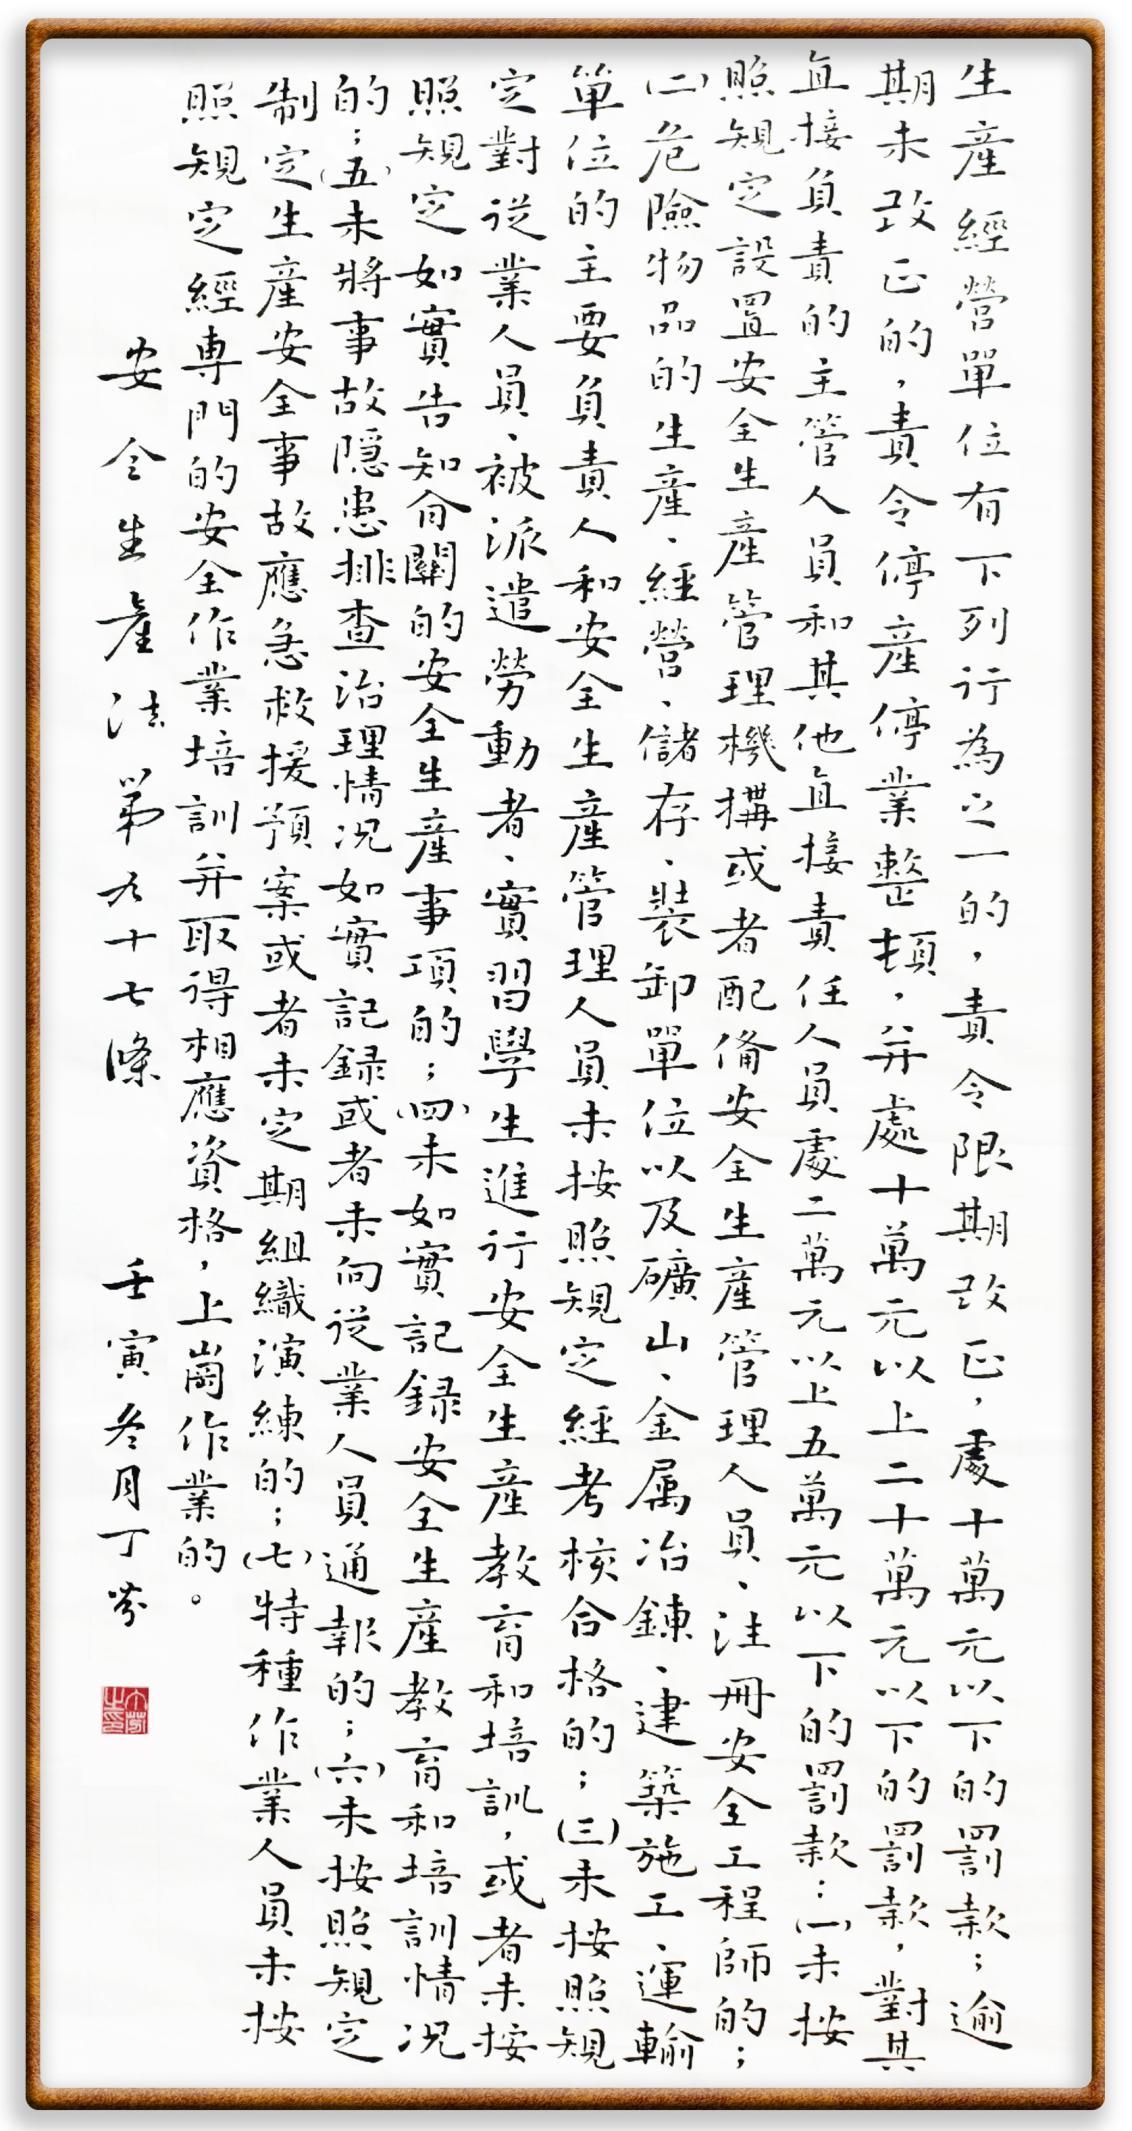 生產經營單位有下列行為之一的，責令限期改正，處十萬元以下的罰款；逾
期未改正的，責令停產停業整頓，并處十萬元以上二十萬元以下的罰款，對其
直接負責的主管人員和其他直接責任人員處二萬元以上五萬元以下的罰款：(一)未按
照規定設置安全生產管理機構或者配備安全生產管理人員、注冊安全工程師的；
(二)危險物品的生產、經營、儲存、裝卸單位以及礦山、金属冶鍊、建築施工、運輸
單位的主要負責人和安全生產管理人員未按照規定經考核合格的；(三)未按照規
定對從業人員、被派遣勞動者、實習學生進行安全生產教育和培訓，或者未按
照規定如實告知有關的安全生產事項的；(四)未如實記録安全生產教育和培訓情况
的；(五)未將事故隱患排查治理情况如實記録或者未向從業人員通報的；(六)未按照規定
制定生產安全事故應急救援預案或者未定期組織演練的；(七)特種作業人員未按
照規定經專門的安全作業培訓并取得相應資格，上崗作業的。
安全生產法第九十七條 壬寅冬月丁芬